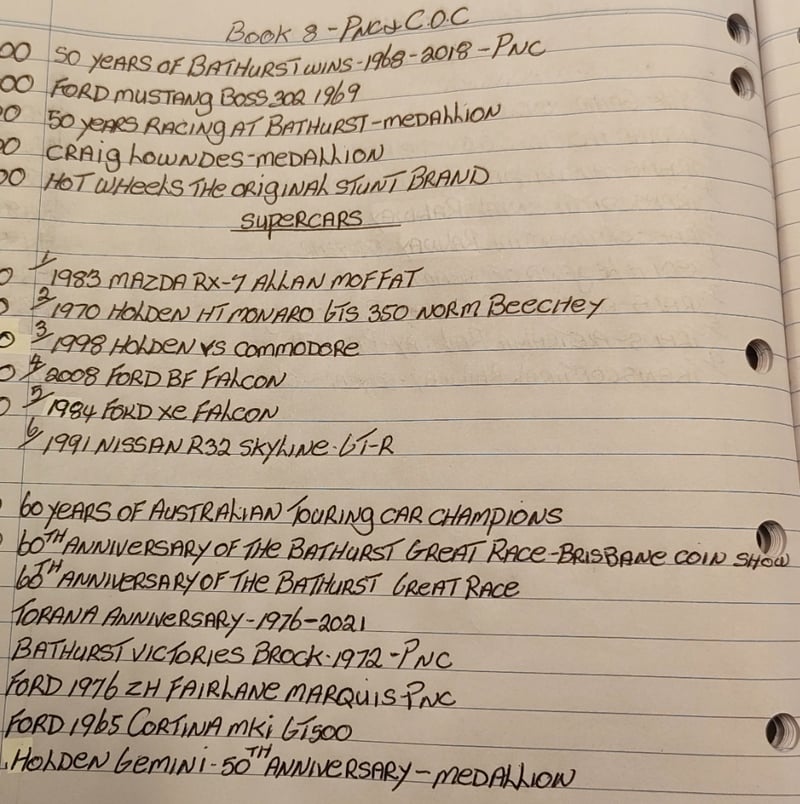 Book 8 - PNC & C.O.C
00 50 YEARS OF BATHURST WINS-1968-2018-PNC
00 FORD MUSTANG BOSS 302 1969
0 50 YEARS RACING AT BATHURST-MEDALLION
0 CRAIG LOWNDES-MEDALLION
00 HOT WHEELS THE ORIGINAL STUNT BRAND
SUPERCARS
0 1/ 1983 MAZDA RX-7 ALLAN MOFFAT
0 2/ 1970 HOLDEN HT MONARO GTS 350 NORM BEECHEY
0 3/ 1998 HOLDEN VS COMMODORE
0 4/ 2008 FORD BF FALCON
0 5/ 1984 FORD XE FALCON
6/ 1991 NISSAN R32 SKYLINE-GT-R
60 YEARS OF AUSTRALIAN TOURING CAR CHAMPIONS
60TH ANNIVERSARY OF THE BATHURST GREAT RACE-BRISBANE COIN SHOW
60TH ANNIVERSARY OF THE BATHURST GREAT RACE
TORANA ANNIVERSARY-1976-2021
BATHURST VICTORIES BROCK-1972-PNC
FORD 1976 ZH FAIRLANE MARQUIS-PNC
FORD 1965 CORTINA MKI GT500
HOLDEN GEMINI-50TH ANNIVERSARY-MEDALLION